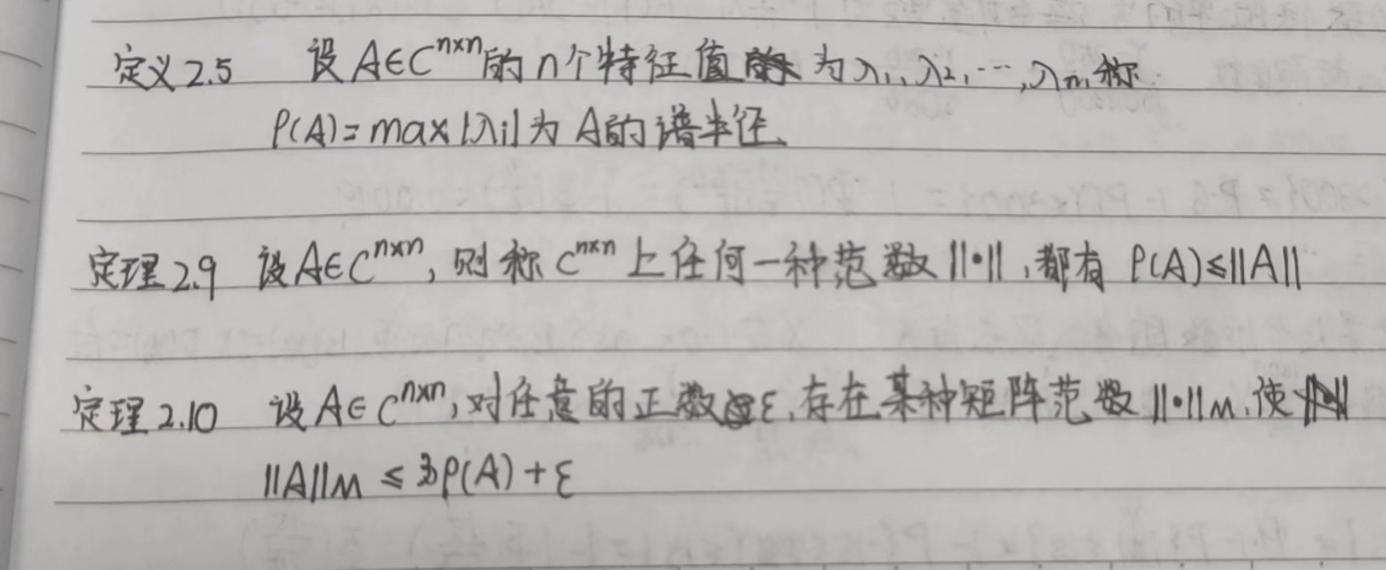 定义2.5 设A∈C^{n×n}的n个特征值为λ₁,λ₂,…,λₙ,称
ρ(A)=max|λi|为A的谱半径.
定理2.9 设A∈C^{n×n},则称C^{n×n}上任何一种范数||·||,都有ρ(A)≤||A||
定理2.10 设A∈C^{n×n},对任意的正数ε,存在某种矩阵范数||·||M,使
||A||M≤ρ(A)+ε